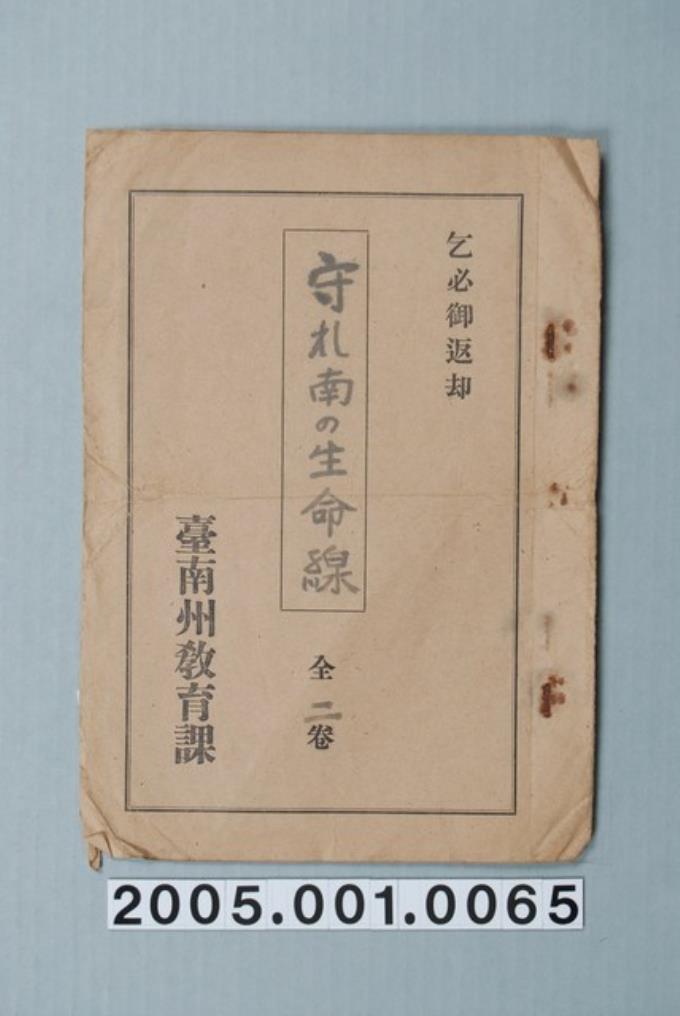 乞必御返却
守れ南の生命線
全二卷
臺南州敎育課
2005.001.0065